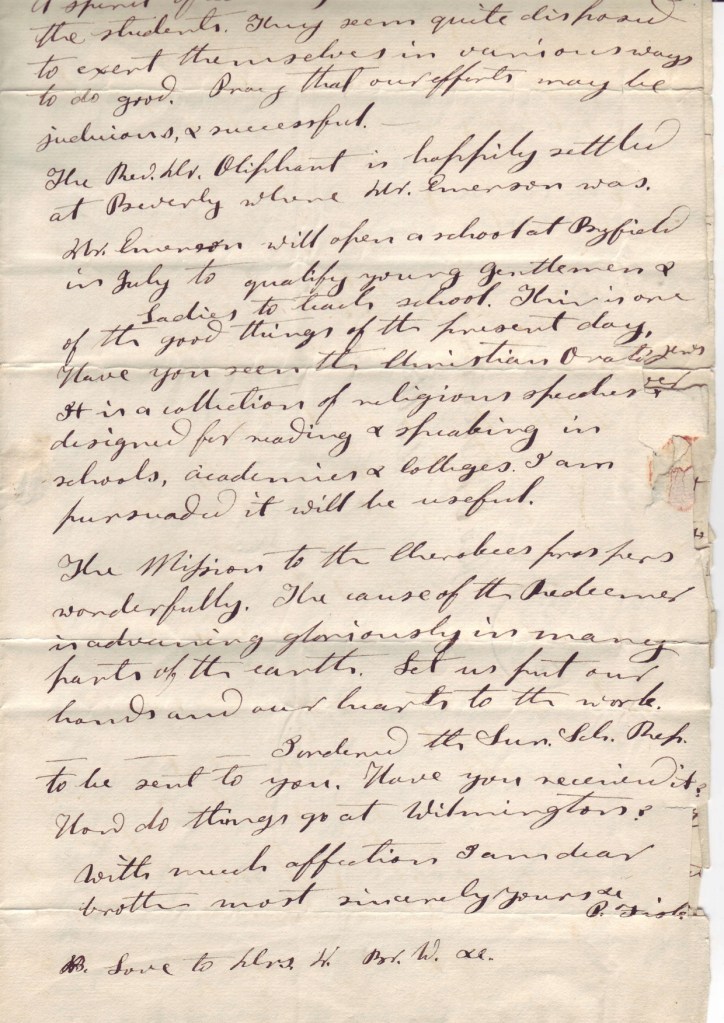 A spirit of
the students. They seem quite disposed
to exert themselves in various ways
to do good. Pray that our efforts may be
judicious, & successful. —
The Rev. Mr. Oliphant is happily settled
at Beverly where Mr. Emerson was.
Mr. Emerson will open a school at Byfield
in July to qualify young gentlemen &
Ladies to teach school. This is one
of the good things of the present day.
Have you seen the Christian Orator
It is a collection of religious speeches &
designed for reading & speaking in
schools, academies & Colleges. I am
persuaded it will be useful.
The Mission to the Cherokees prospers
wonderfully. The cause of the Redeemer
is advancing gloriously in many
parts of the earth. Let us put our
hands and our hearts to the work.
I ordered the Sun. Sch. Rep.
to be sent to you. Have you received it?
How do things go at Wilmington?
With much affection I am dear
brother most sincerely yours &c
P. Fisk.
Love to Mrs. W. Br. W. &c.